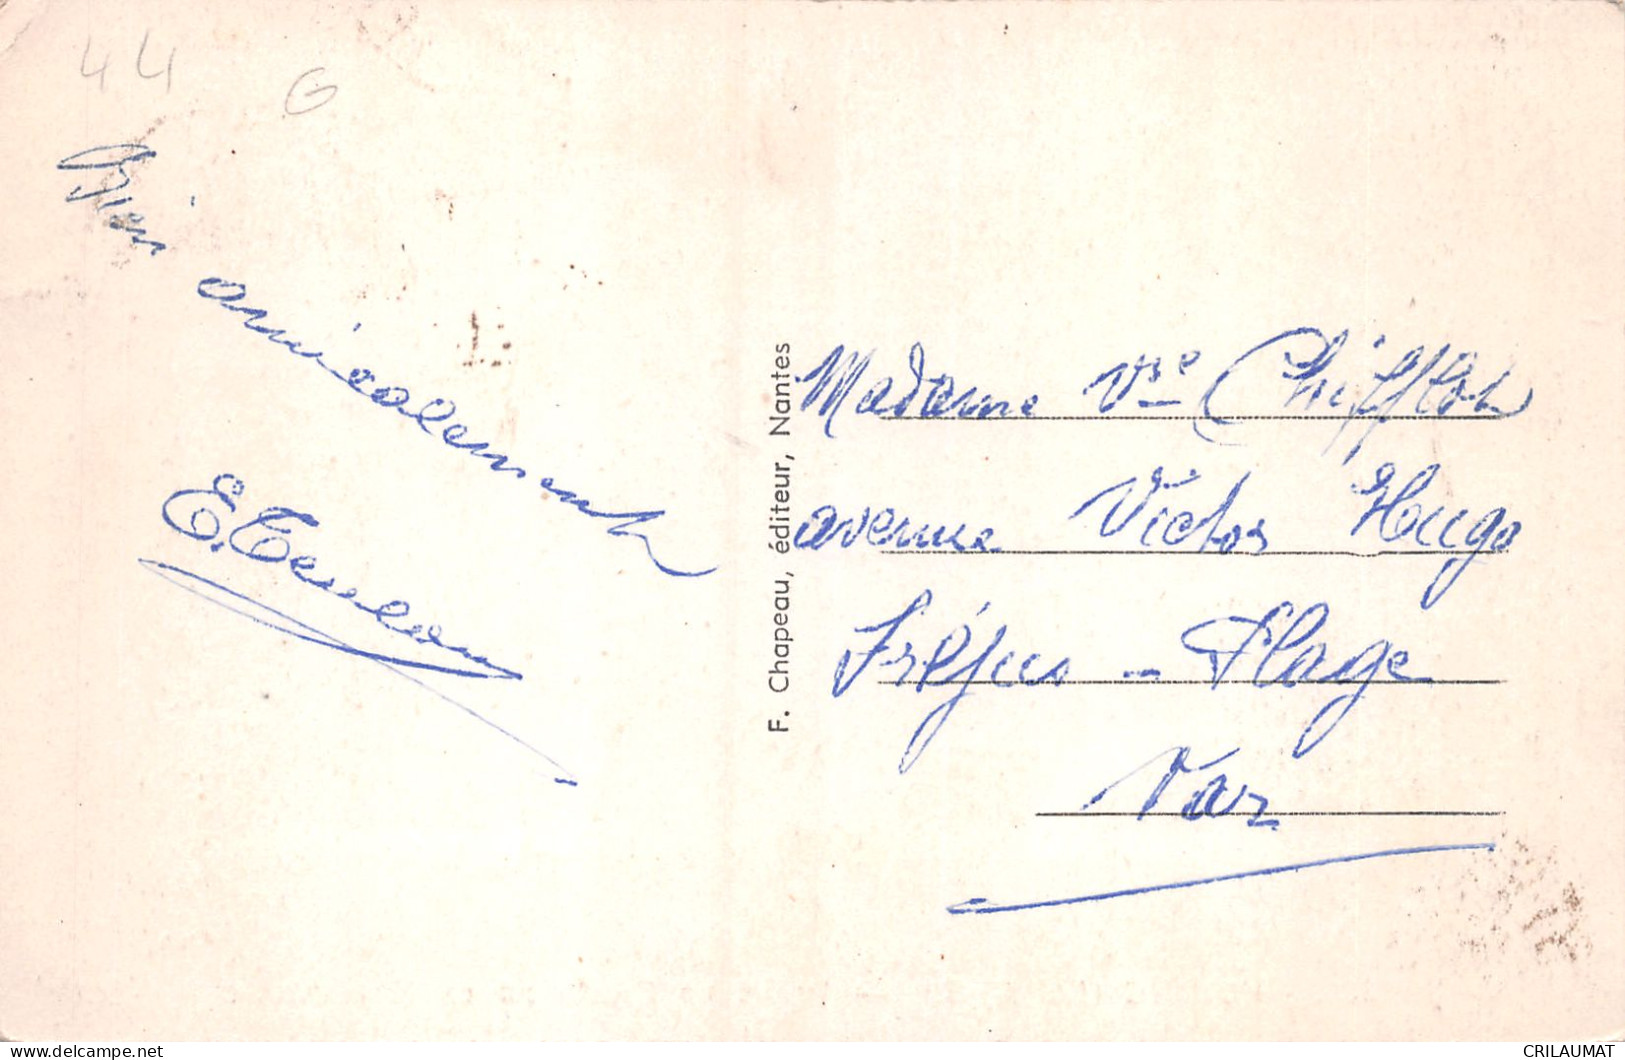 44
G
Bien
amicalement
E. Teulon
F. Chapeau, éditeur, Nantes
Madame Vve Chifflot
avenue Victor Hugo
Fréjus - Plage
Var
delcampe.net
CRILAUMAT